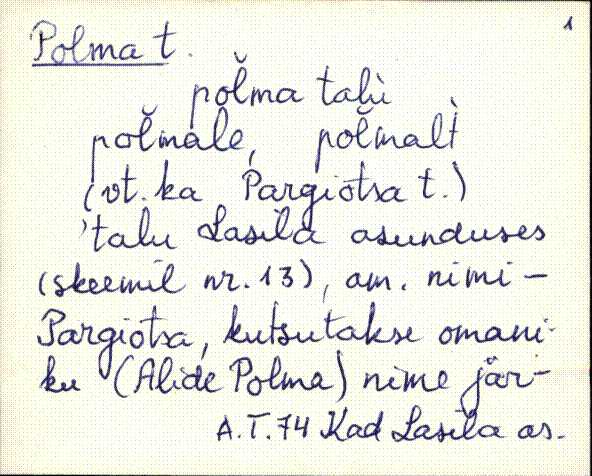 1
Polma t.
pol̆ma talù
pol̆male, pol̆malt̀
(vt. ka Pargiotsa t.)
'talu Lasila asunduses
(skeemil nr. 13), am. nimi -
Pargiotsa, kutsutakse omani-
ku (Alide Polma) nime jär-
A.T. 74 Kad Lasila as.